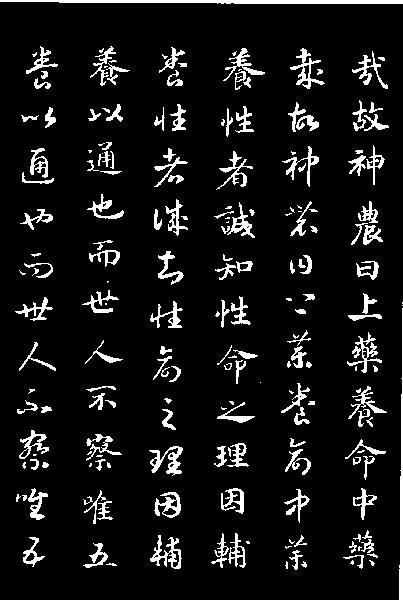 哉故神農曰上藥養命中藥
哉故神農曰上藥養命中藥
養性者誠知性命之理因輔
養性者誠知性命之理因輔
養以通也而世人不察唯五
養以通也而世人不察唯五